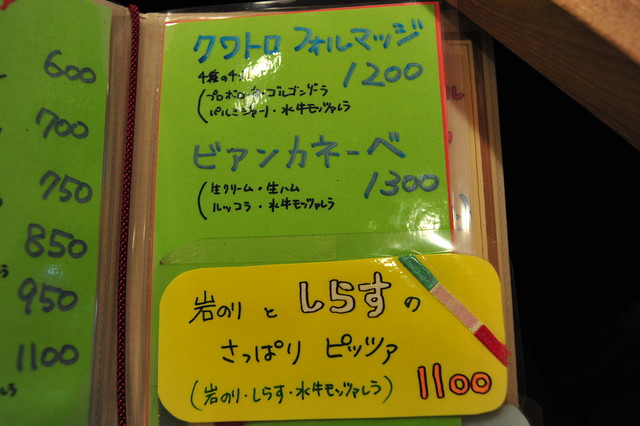 600
700
750
850
950
1100
クワトロ フォルマッジ
1200
(プロボローネ・ゴルゴンゾーラ
パルミジャーノ・水牛モッツァレラ
ビアンカネーベ
1300
(生クリーム・生ハム
ルッコラ・水牛モッツァレラ
岩のり と しらす の
さっぱり ピッツァ
(岩のり・しらす・水牛モッツァレラ) 1100